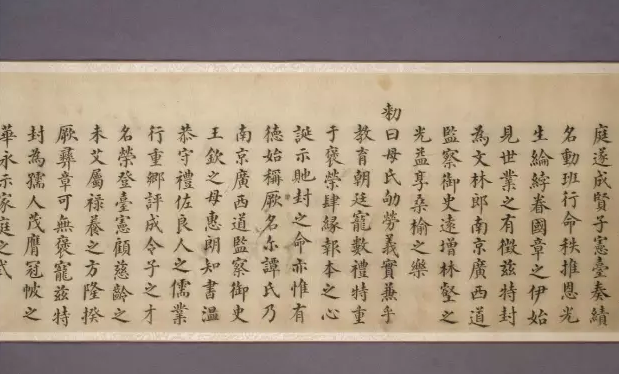 庭遂成賢子憲臺奏績
名動班行命秩推恩光
生綸綍眷國章之伊始
見世業之有徵茲特封
為文林郎南京廣西道
監察御史逺增林壑之
光益享桑榆之樂
勑曰母氏劬勞義實兼乎
教育朝廷寵數禮特重
于褒榮肆緣報本之心
誕示貤封之命亦惟有
徳始稱厥名尔譚氏乃
南京廣西道監察御史
王欽之母惠朗知書温
恭守禮佐良人之儒業
行重鄉評成令子之才
名榮登臺憲顧慈齡之
未艾屬禄養之方隆揆
厥彞章可無褒寵茲特
封為孺人茂膺冠帔之
華永示家庭之式